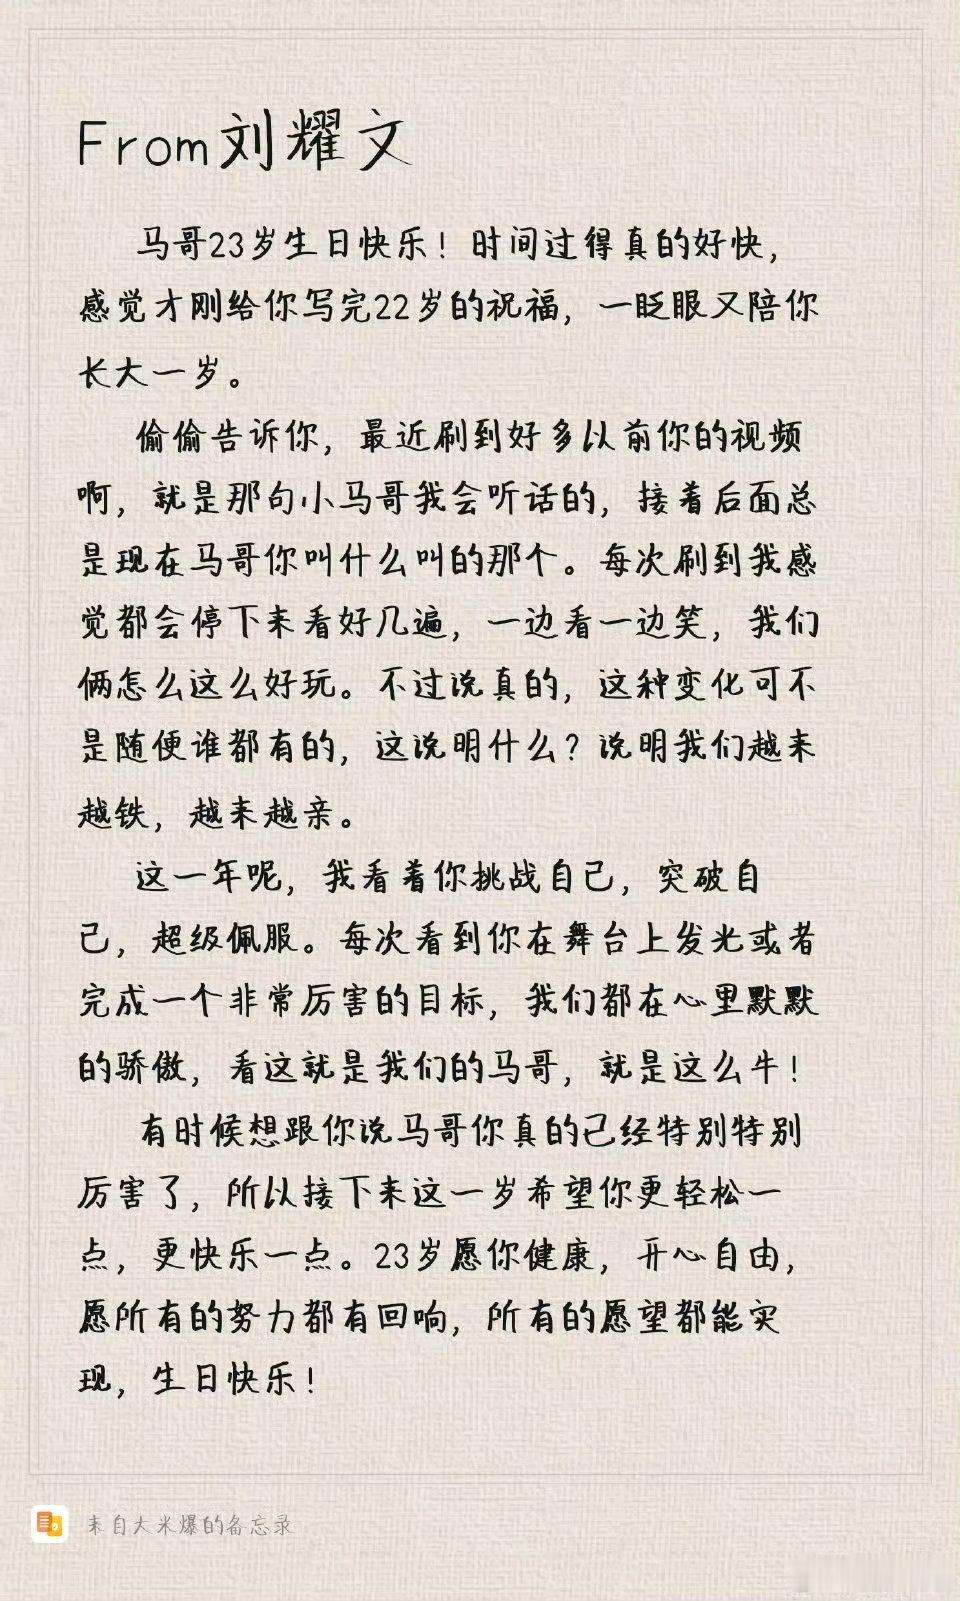 From刘耀文
马哥23岁生日快乐！时间过得真的好快，
感觉才刚给你写完22岁的祝福，一眨眼又陪你
长大一岁。
偷偷告诉你，最近刷到好多以前你的视频
啊，就是那句小马哥我会听话的，接着后面总
是现在马哥你叫什么叫的那个。每次刷到我感
觉都会停下来看好几遍，一边看一边笑，我们
俩怎么这么好玩。不过说真的，这种变化可不
是随便谁都有的，这说明什么？说明我们越来
越铁，越来越亲。
这一年呢，我看着你挑战自己，突破自
己，超级佩服。每次看到你在舞台上发光或者
完成一个非常厉害的目标，我们都在心里默默
的骄傲，看这就是我们的马哥，就是这么牛！
有时候想跟你说马哥你真的已经特别特别
厉害了，所以接下来这一岁希望你更轻松一
点，更快乐一点。23岁愿你健康，开心自由，
愿所有的努力都有回响，所有的愿望都能实
现，生日快乐！
来自大米爆的备忘录